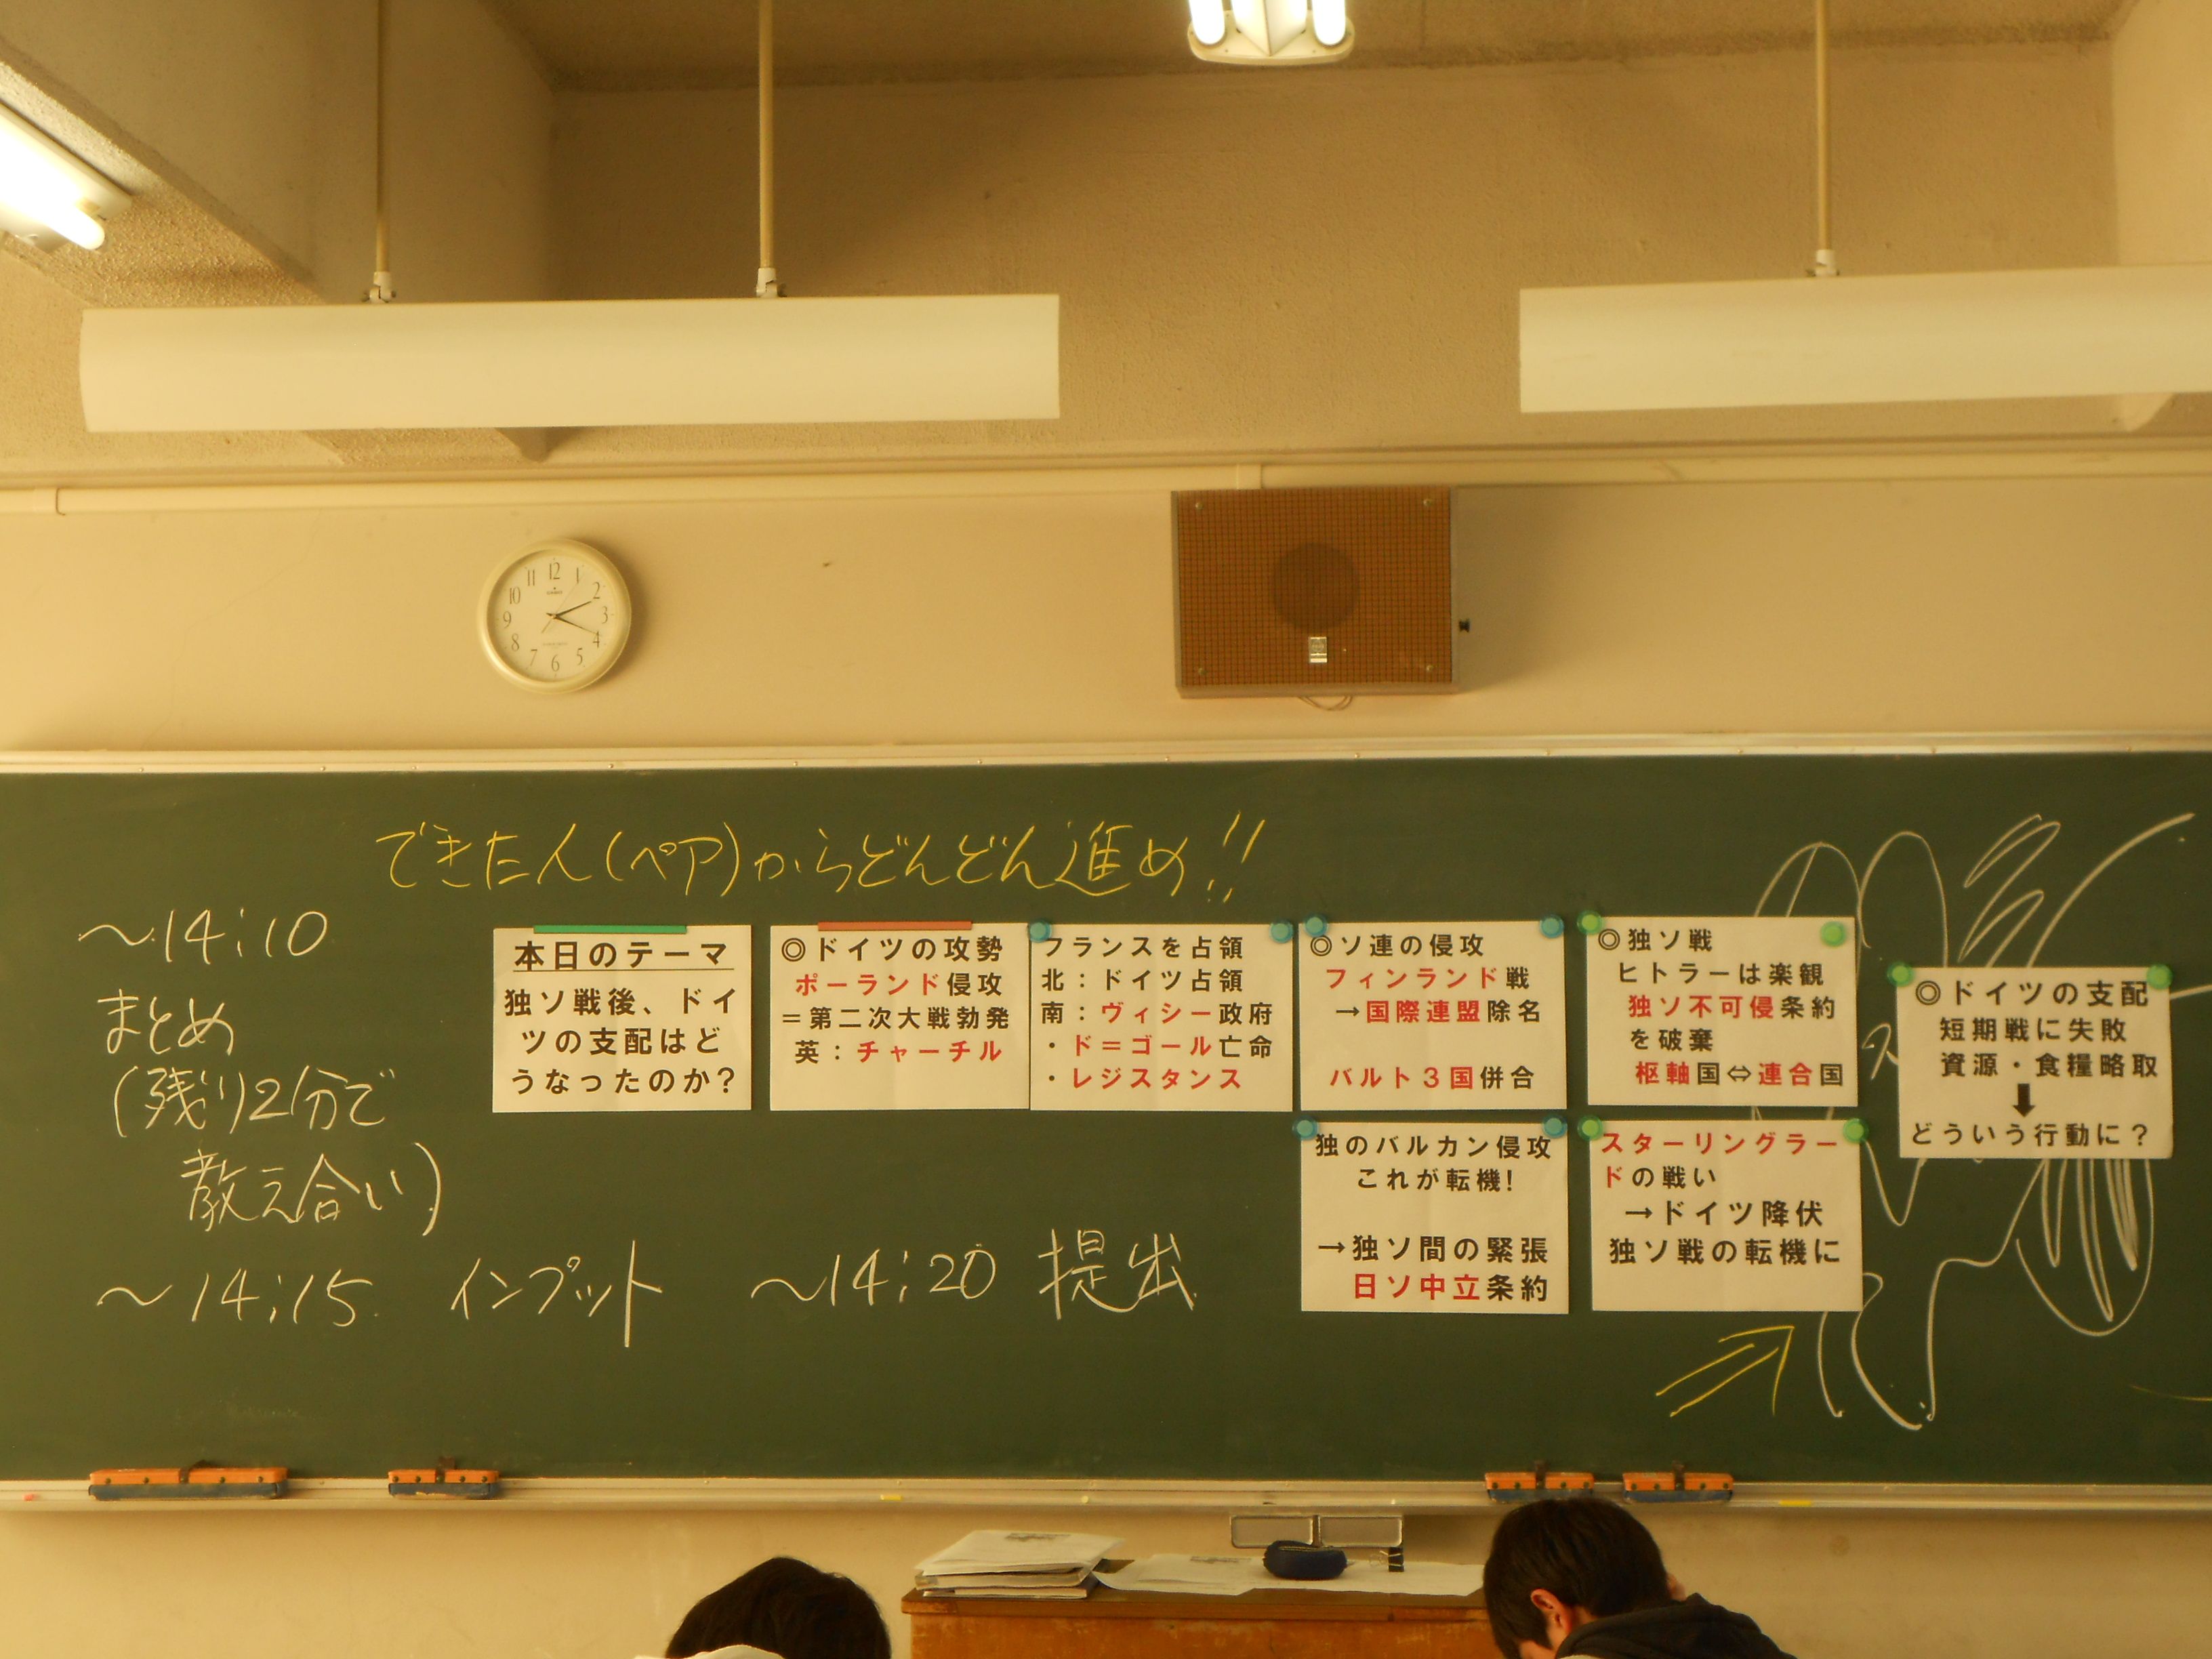 できた人(ペア)からどんどん進め!!
～14:10
まとめ
(残り2分で
教え合い)
～14:15 インプット ～14:20 提出
本日のテーマ
独ソ戦後、ドイ
ツの支配はど
うなったのか?
◎ドイツの攻勢
ポーランド侵攻
＝第二次大戦勃発
英：チャーチル
フランスを占領
北：ドイツ占領
南：ヴィシー政府
・ド＝ゴール亡命
・レジスタンス
◎ソ連の侵攻
フィンランド戦
→国際連盟除名
バルト3国併合
独のバルカン侵攻
これが転機!
→独ソ間の緊張
日ソ中立条約
◎独ソ戦
ヒトラーは楽観
独ソ不可侵条約
を破棄
枢軸国⇔連合国
スターリングラー
ドの戦い
→ドイツ降伏
独ソ戦の転機に
◎ドイツの支配
短期戦に失敗
資源・食糧略取
⬇
どういう行動に？
12
1
2
3
4
5
6
7
8
9
10
11